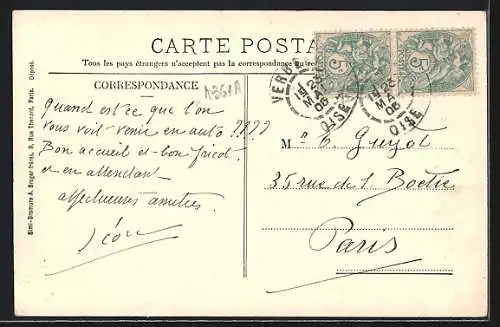 CARTE POSTA
Tous les pays étrangers n'acceptent pas la correspondance au
CORRESPONDANCE
A361A
Quand est ce que l'on
vous voit venir en auto ????
Bon accueil et bon fricot.
et en attendant
affectueuses amitiés.
Léon
M E. Guyot
35 rue de la Boétie
Paris
5
5
VERB
OISE
OISE
Simi-Gravure A. Breger Frères, 9, Rue Thénard, Paris. Déposé.